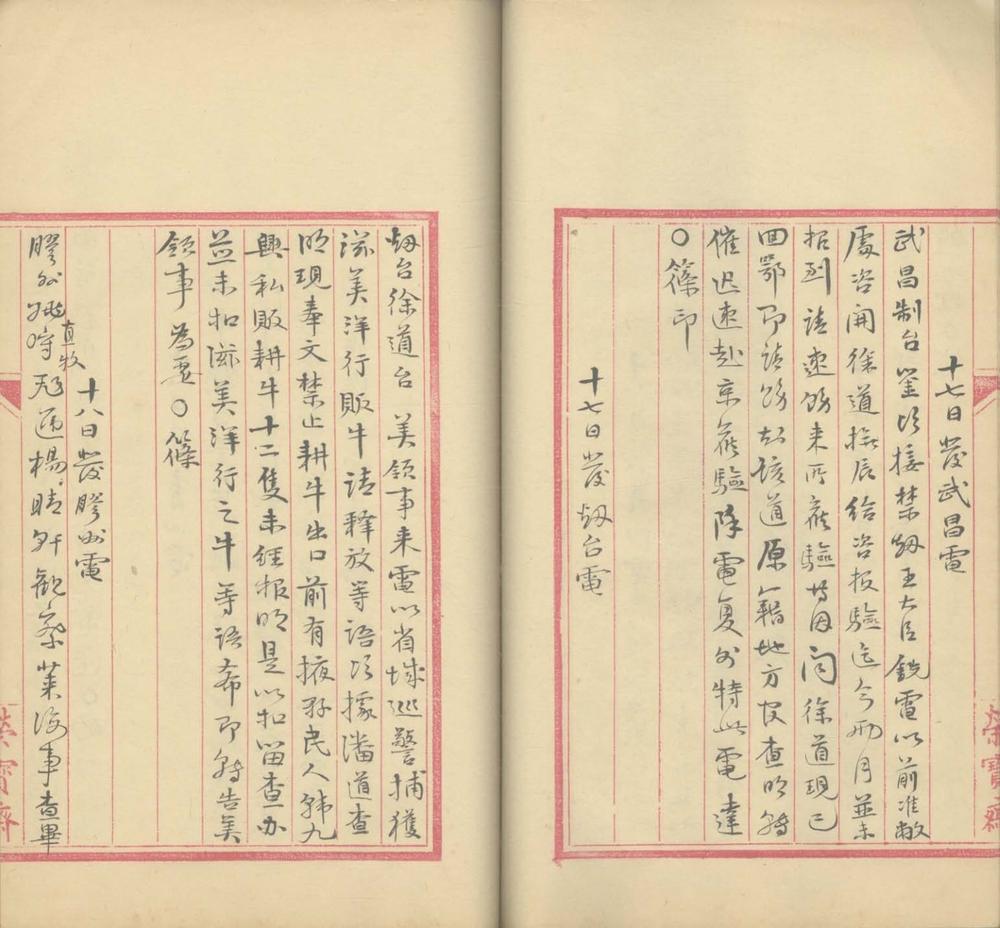 十七日發武昌電
武昌制台鑒頃接禁烟王大臣銑電以前准敝
處咨開徐道撫辰給咨报驗迄今兩月並未
报到請速飭来所查驗等因问徐道現已
回鄂即請飭知該道原籍地方官查明轉
催迅速赴京查驗除電复外特此電達
〇篠印
十七日發烟台電
烟台徐道台 美領事来電以省城巡警捕獲
滋美洋行販牛請釋放等語頃據潘道查
明現奉文禁止耕牛出口前有掖縣民人韩九
興私販耕牛十二隻未經报明是以扣留查办
並未扣滋美洋行之牛等語希即轉告美
領事為要〇篠
十八日發膠州電
膠州姚 直牧 飛遞楊 觀察萊海事查畢
榮寶齋
榮寶齋